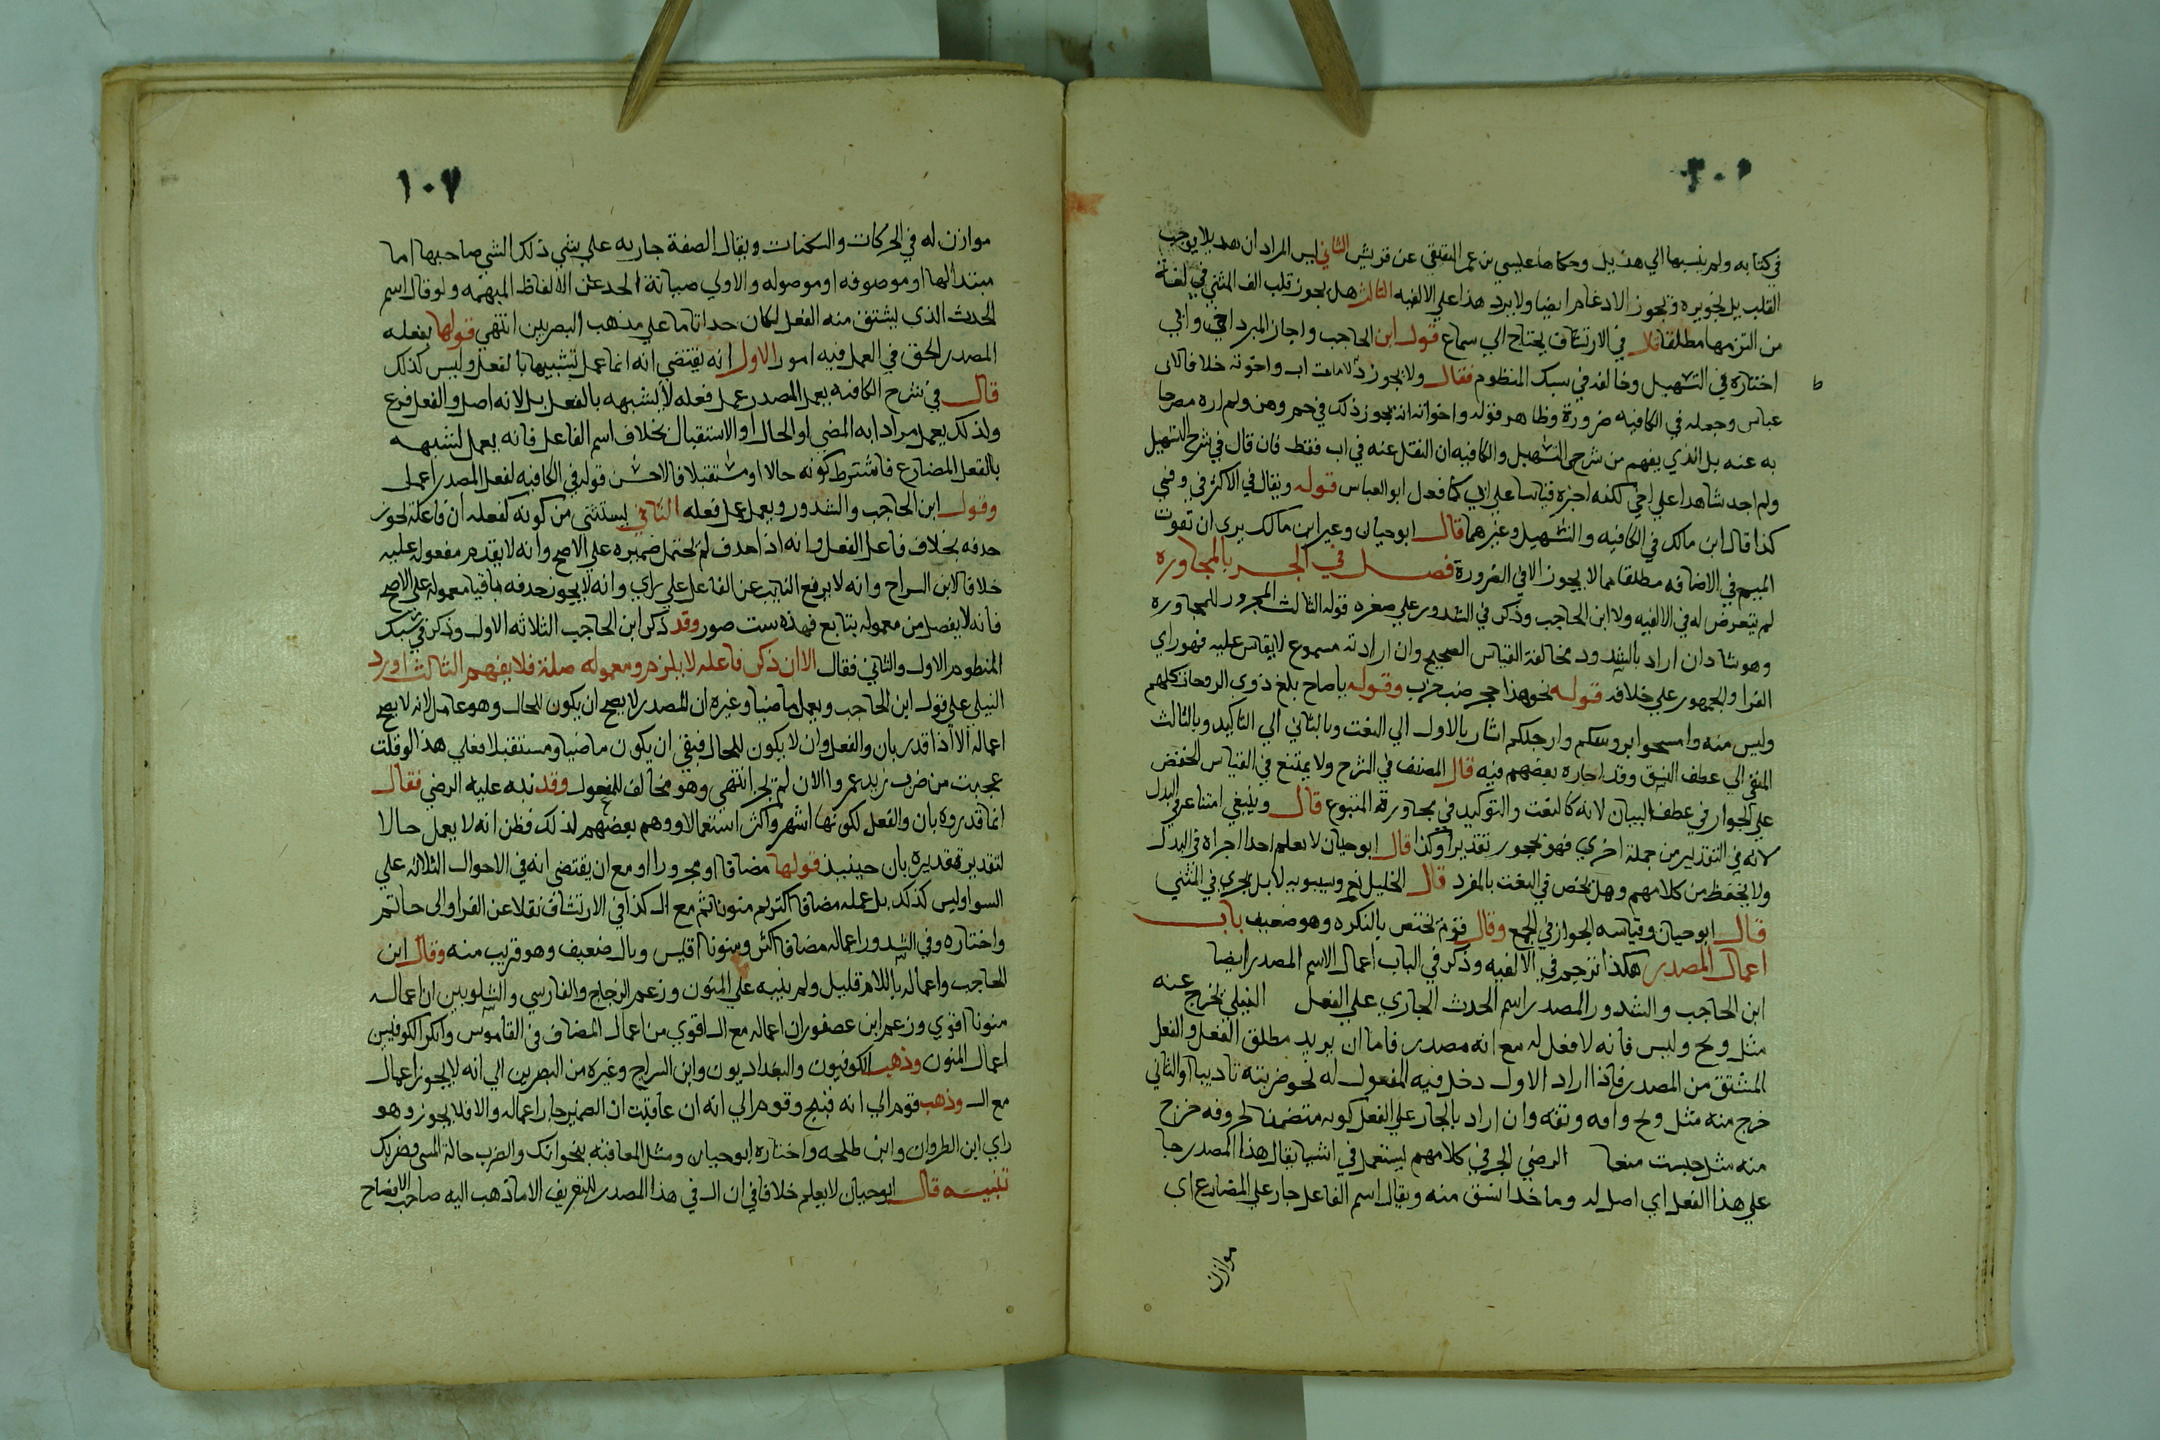 في كتابه ولم ينسبها الي هذيل وحكاها عيسي بن عمر الثقفي عن قريش الثاني ليس المراد ان هذيلا يوجب
القلب بل تجويزه وتجوز الادغام ايضا ولا يرد هذا علي الالفيه الثالث هل يجوز قلب الف المثني في لغة
من التزمها مطلقا قال في الارتشاف يحتاج الي سماع قول ابن الحاجب واجاز المبرد اخي وابي
اختاره في التسهيل وخالفه في سبك المنظوم فقال ولا يجوز رد لامات اب واخوته خلافا لابي
عباس وجعله في الكافيه ضرورة وظاهر قوله واخواته انه يجوز ذلك في حم وهن ولم اره مصرحا
به عنه بل الذي يفهم من شرحي التسهيل والكافيه ان النقل عنه في اب فقط فان قال في شرح التسهيل
ولم اجد شاهدا علي اخي لكنه اجيزه قياسا علي ابي كما فعل ابو العباس قوله ويقال في الاكثر في وفمي
كذا قال ابن مالك في الكافيه والتسهيل وغيرهما قال ابو حيان وغير ابن مالك يري ان ثبوت
الميم في الاضافه مطلقا مما لا يجوز الا في الضرورة فصل في الجر بالمجاوره
لم يتعرض له في الالفيه ولا ابن الحاجب وذكر في الشذور علي صغره قوله الثالث المجرور للمجاوره
وهو شاذ ان اراد بالشذوذ مخالفة القياس الصحيح وان اراد انه مسموع لا يقاس عليه فهو راي
الفرا والجمهور علي خلافه قوله نحو هذا حجر ضب خرب وقوله ياصاح بلغ ذوي الزوجات كلهم
وليس منه وامسحوا بروسكم وارجلكم اشار بالاول الي النعت وبالثاني الي التاكيد وبالثالث
المنفي الي عطف النسق وقد اجازه بعضهم فيه قال المصنف في الشرح ولا يمتنع في القياس الخفض
علي الجوار في عطف البيان لانه كالنعت والتوكيد في مجاورة المتبوع قال وينبغي امتناعه في البدل
لانه في التقدير من جملة اخري فهو محجور تقديرا وكذا قال ابو حيان لا يعلم احدا اجراه في البدل
ولا يحفظ من كلامهم وهل يختص في النعت بالمفرد قال الخليل نعم وسيبويه لا بل يجري في المثني
قال ابو حيان وقياسه الجواز في الجمع وقال قوم تختص بالنكره وهو ضعيف باب
اعمال المصدر هكذا ترجم في الالفيه وذكر في الباب اعمال الاسم المصدر ايضا
ابن الحاجب والشذور المصدر اسم الحدث الجاري علي الفعل النيلي يخرج عنه
مثل ويح وليس فانه لا فعل له مع انه مصدر فاما ان يريد مطلق الفعل والفعل
المشتق من المصدر فاذا اراد الاول دخل فيه المفعول له نحو ضربته تاديبا والثاني
خرج منه مثل ويح وافه وتفه وان اراد بالجار علي الفعل كونه متضمنا لحروفه خرج
منه مثل حبست منعا الرضي الجر في كلامهم يستعمل في اشيا يقال هذا المصدر جا
علي هذا الفعل اي اصل له وماخذ اشتق منه ويقال اسم الفاعل جار علي المضارع اي
موازن
١٠٧
موازن له في الحركات والسكنات ويقال الصفة جاريه علي شي ذلك الشي صاحبها اما
مبتدا لها او موصوفه او موصوله والاولي صيانة الحد عن الالفاظ المبهمه ولو قال اسم
الحدث الذي يشتق منه الفعل لكان حدا تاما علي مذهب البصريين انتهي قولها بفعله
المصدر الحق في العمل فيه امور الاول انه يقتضي انه انما عمل تشبيها بالفعل وليس كذلك
قال في شرح الكافيه يعمل المصدر عمل فعله لا لشبهه بالفعل بل لانه اصل والفعل فرع
ولذلك يعمل مرادا به المضي او الحال او الاستقبال بخلاف اسم الفاعل فانه يعمل لشبهه
بالفعل المضارع فاشترط كونه حالا او مستقبلا فالاحسن قوله في الكافيه لفعل المصدر اعملي
وقول ابن الحاجب والشذور ويعمل عمل فعله الثاني يستثني من كونه كفعله ان فاعله يجوز
حذفه بخلاف فاعل الفعل وانه اذا حذف لم يحتمل ضميره علي الاصح وانه لا يقدم مفعوله عليه
خلافا لابن السراج وانه لا يرفع النايب عن الفاعل علي راي وانه لا يجوز حذفه باقيا معموله علي الاصح
فانه لا يفصل من معموله بتابع فهذه ست صور وقد ذكر ابن الحاجب الثلاثه الاول وذكر في سبك
المنظوم الاول والثاني فقال الا ان ذكر فاعله لا يلزم ومعموله صلة فلا يفهم الثالث اورد
النيلي علي قول ابن الحاجب ويعمل ماضيا وغيره ان المصدر لا يصح ان يكون للحال وهو عامل لانه لا يصح
اعماله الا اذا قدر بان والفعل وان لا يكون للحال فبقي ان يكون ماضيا ومستقبلا فعلي هذا لو قلت
عجبت من ضرب زيد عمروا الان لم يجز انتهي وهو مخالف للمفعول وقد نبه عليه الرضي فقال
انما قدروه بان والفعل لكونها اشهر واكثر استعمالا ووهم بعضهم لذلك فظن انه لا يعمل حالا
لتقدير تقديره بان حينيذ قولها مضافا او مجرورا او مع ان يقتضي انه في الاحوال الثلاثه علي
السوا وليس كذلك بل عمله مضافا اكثر ثم منونا ثم مع ال كذا في الارتشاف نقلا عن الفرا وابي حاتم
واختاره وفي الشذور اعماله مضافا اكثر ومنونا اقيس وبال ضعيف وهو قريب منه وقال ابن
الحاجب واعماله باللام قليل ولم ينبه علي المنون وزعم الزجاج والفارسي والشلوبين ان اعماله
منونا اقوي وزعم ابن عصفور ان اعماله مع ال اقوي من اعمال المضاف في القاموس وانكر الكوفيين
اعمال المنون وذهب الكوفيون والبغداديون وابن السراج وغيره من البصريين الي انه لا يجوز اعمال
مع ال وذهب قوم الي انه قبيح وقوم الي انه ان عاقبت ان الضمير جاز اعماله والا فلا يجوز وهو
راي ابن الطراوه وابن طلحه واختاره ابو حيان ومثل المعاقبه نحو انك والضرب حالة المسي وضربك
تنبيه قال ابو حيان لا يعلم خلافا في ان ال في هذا المصدر للتعريف الا ما ذهب اليه صاحب الايضاح